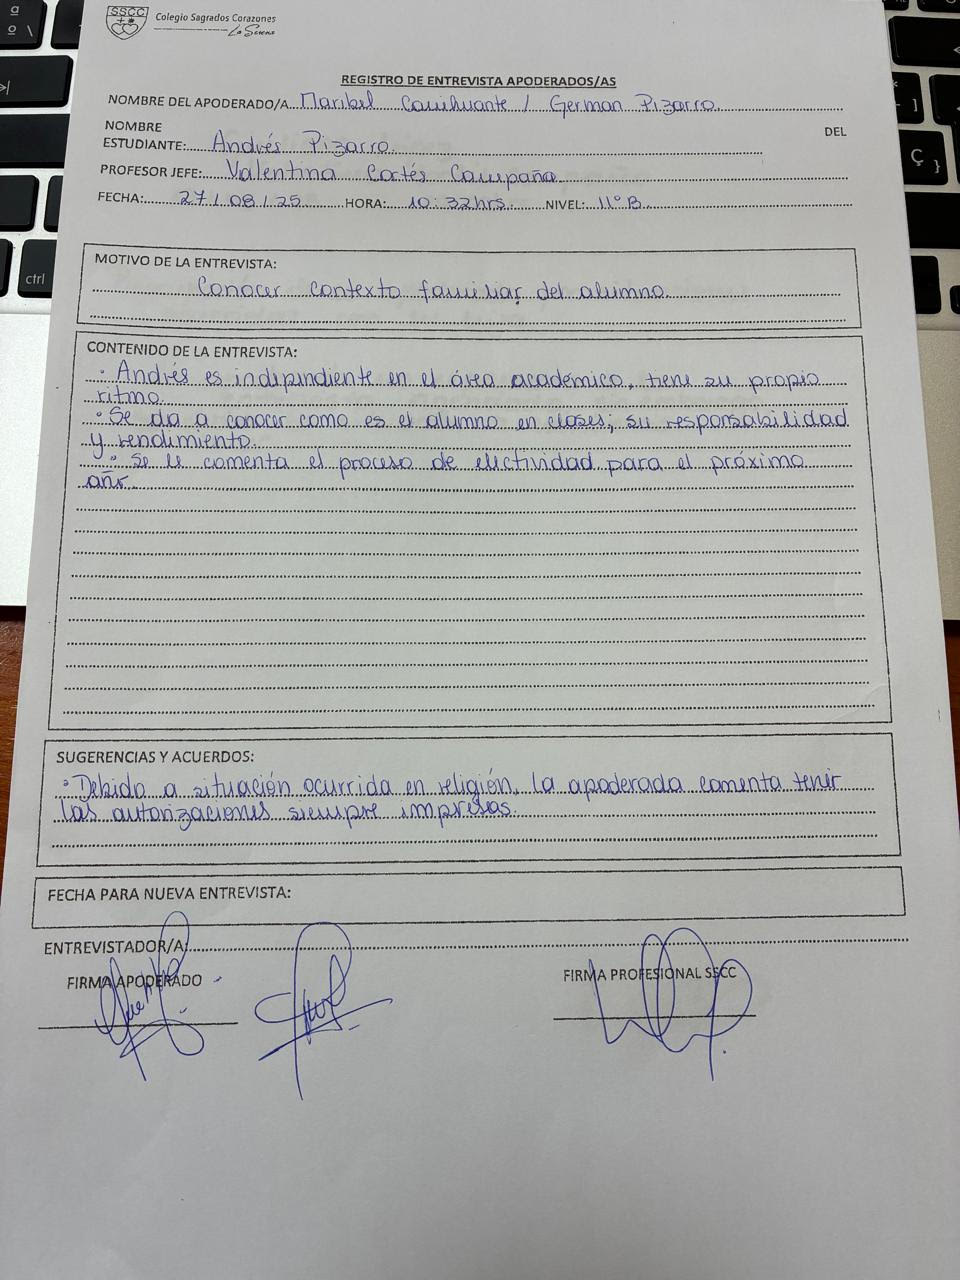 SSCC
Colegio Sagrados Corazones
La Serena
REGISTRO DE ENTREVISTA APODERADOS/AS
NOMBRE DEL APODERADO/A Maribel / German Pizarro
NOMBRE DEL
ESTUDIANTE: Andrés Pizarro
PROFESOR JEFE: Valentina Cortés Campaña
FECHA: 27/08/25 HORA: 10:32hrs. NIVEL: II°B
MOTIVO DE LA ENTREVISTA:
Conocer contexto familiar del alumno.
CONTENIDO DE LA ENTREVISTA:
• Andrés es independiente en el área académico, tiene su propio
ritmo.
• Se da a conocer como es el alumno en clases; su responsabilidad
y rendimiento.
• Se le comenta el proceso de electividad para el próximo
año.
SUGERENCIAS Y ACUERDOS:
• Debido a situación ocurrida en religión, la apoderada comenta tener
las autorizaciones siempre impresas.
FECHA PARA NUEVA ENTREVISTA:
ENTREVISTADOR/A:
FIRMA APODERADO FIRMA PROFESIONAL SSCC
ctrl